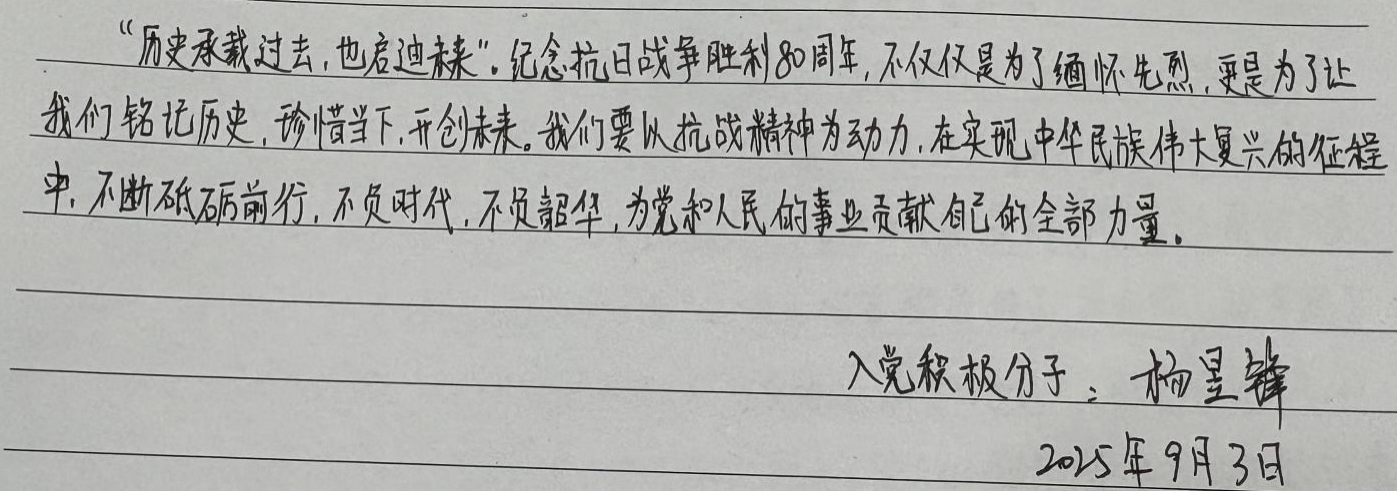 “历史承载过去,也启迪未来”。纪念抗日战争胜利80周年,不仅仅是为了缅怀先烈,更是为了让
我们铭记历史,珍惜当下,开创未来。我们要以抗战精神为动力,在实现中华民族伟大复兴的征程
中,不断砥砺前行,不负时代,不负韶华,为党和人民的事业贡献自己的全部力量。
入党积极分子:杨星锋
2025年9月3日